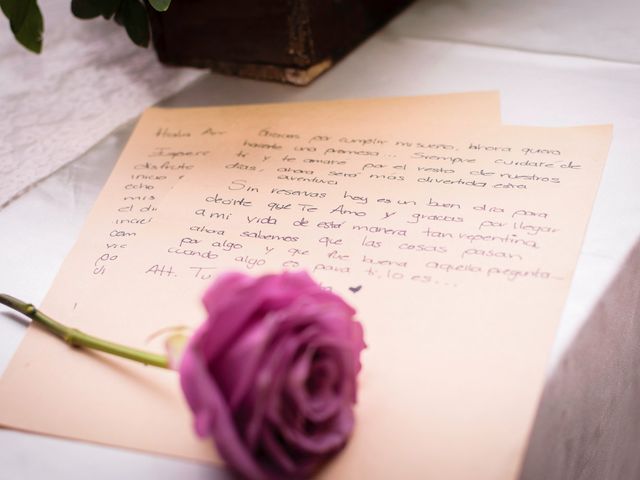 Hola Am
Gracias por cumplir mi sueño, ahora quiero
hacerte una promesa... Siempre cuidaré de
ti y te amaré por el resto de nuestros
días, ahora será más divertida esta
aventura
Sin reservas hoy es un buen día para
decirte que Te Amo y gracias por llegar
a mi vida de esta manera tan repentina
ahora sabemos que las cosas pasan
por algo y que fue buena aquella pregunta...
cuando algo es para ti, lo es...
Att. Tu
disfrute
inicio
echo
mis
el di
increi
com
vic
po
di